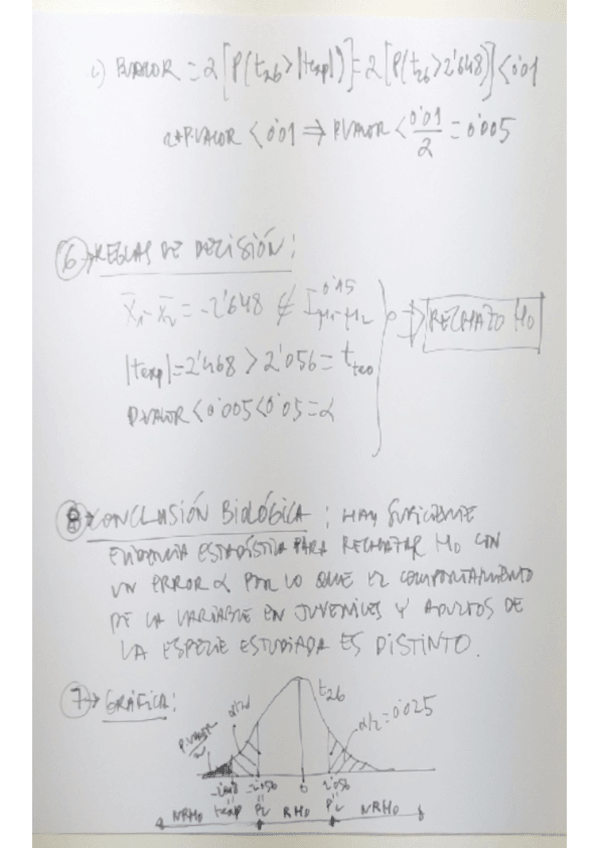 c) PVALOR = 2[P(t26 > |texp|)] = 2[P(t26 > 2'648)] < 0'01
2*P.VALOR < 0'01 ⇒ P.VALOR < 0'01/2 = 0'005
⑥→ REGLAS DE DECISIÓN:
x̄1 - x̄2 = -2'648 ∉ I 0'95 μ1-μ2
|texp| = 2'468 > 2'056 = t teo
P.VALOR < 0'005 < 0'05 = α
⇒ RECHAZO H0
⑧→ CONCLUSIÓN BIOLÓGICA: HAY SUFICIENTE
EVIDENCIA ESTADÍSTICA PARA RECHAZAR H0 CON
UN ERROR α POR LO QUE EL COMPORTAMIENTO
DE LA VARIABLE EN JUVENILES Y ADULTOS DE
LA ESPECIE ESTUDIADA ES DISTINTO.
⑦→ GRÁFICA:
t26
α/2
α/2 = 0'025
P.VALOR
-2'056 0 2'056
texp Pc Pc
NRH0 RH0 NRH0